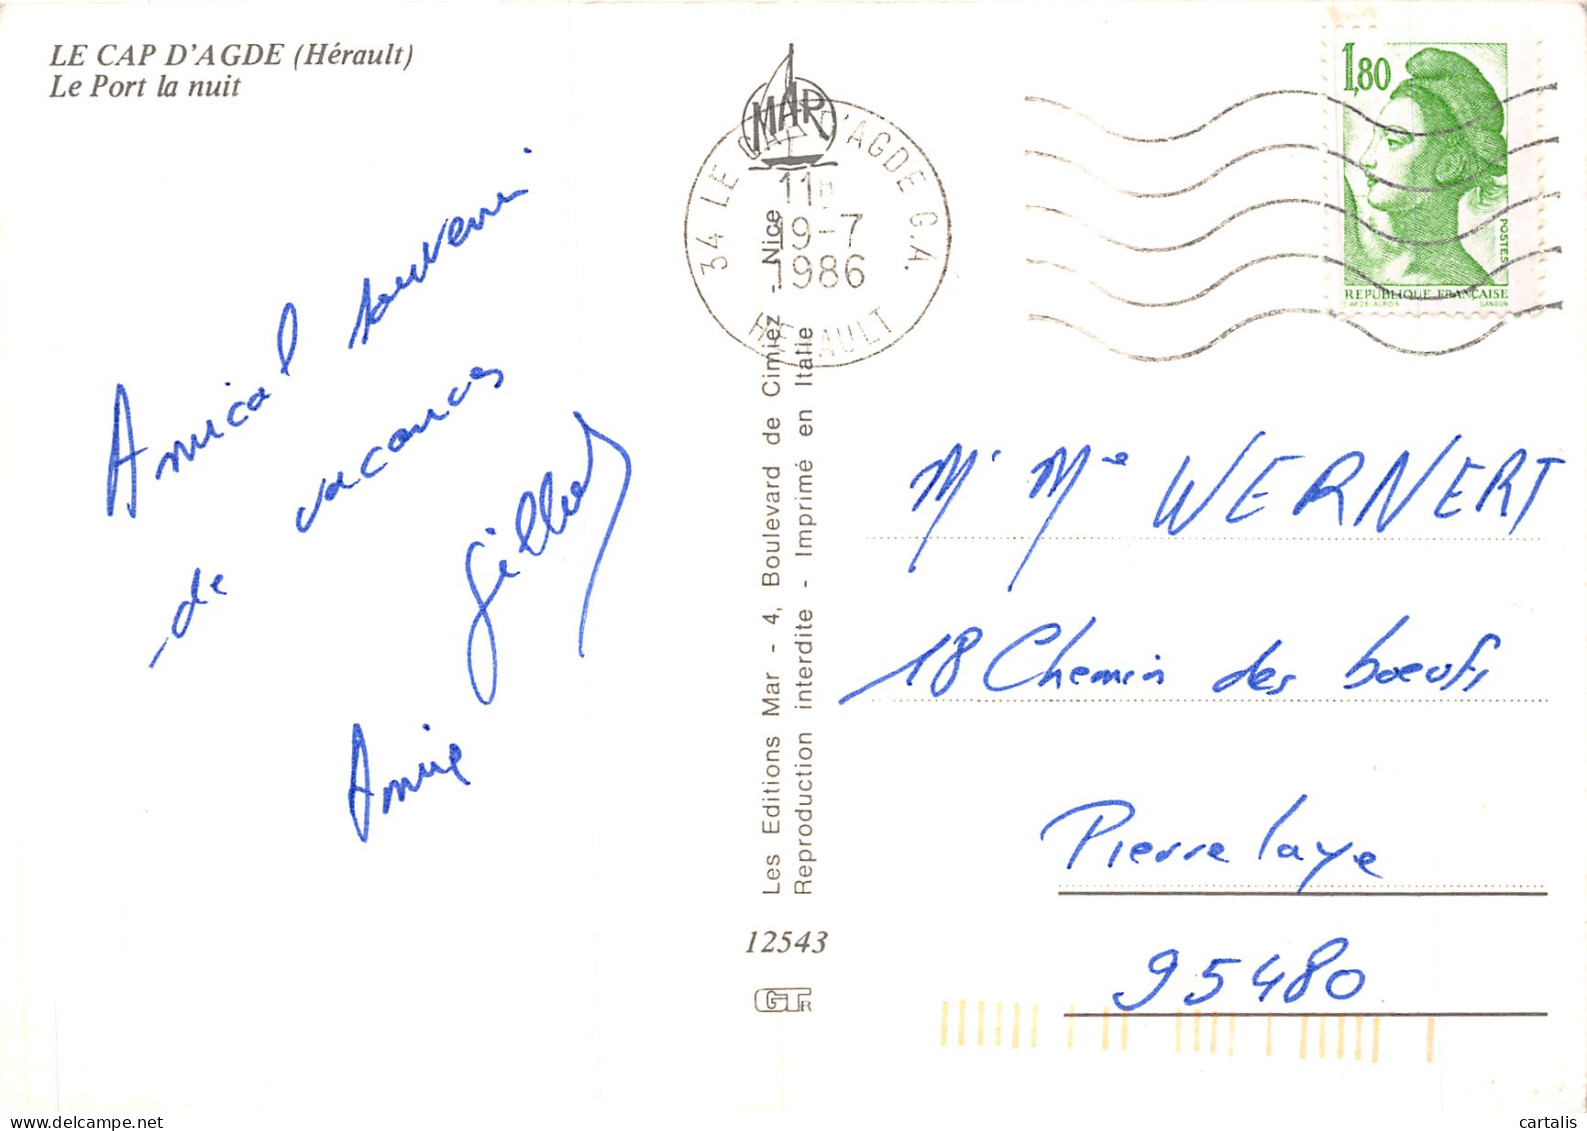 LE CAP D'AGDE (Hérault)
Le Port la nuit
Amical souvenir
de vacances
Gilbert
MAR
34 LE CAP D'AGDE G.A.
11H
19-7
1986
HERAULT
1,80
POSTES
REPUBLIQUE FRANÇAISE
GANDON
Les Editions Mar - 4, Boulevard de Cimiez - Nice
Reproduction interdite - Imprimé en Italie
12543
GTR
Mr Mme WERNERT
18 Chemin des bœufs
Pierrelaye
95480
cartalis
https://www.delcampe.net